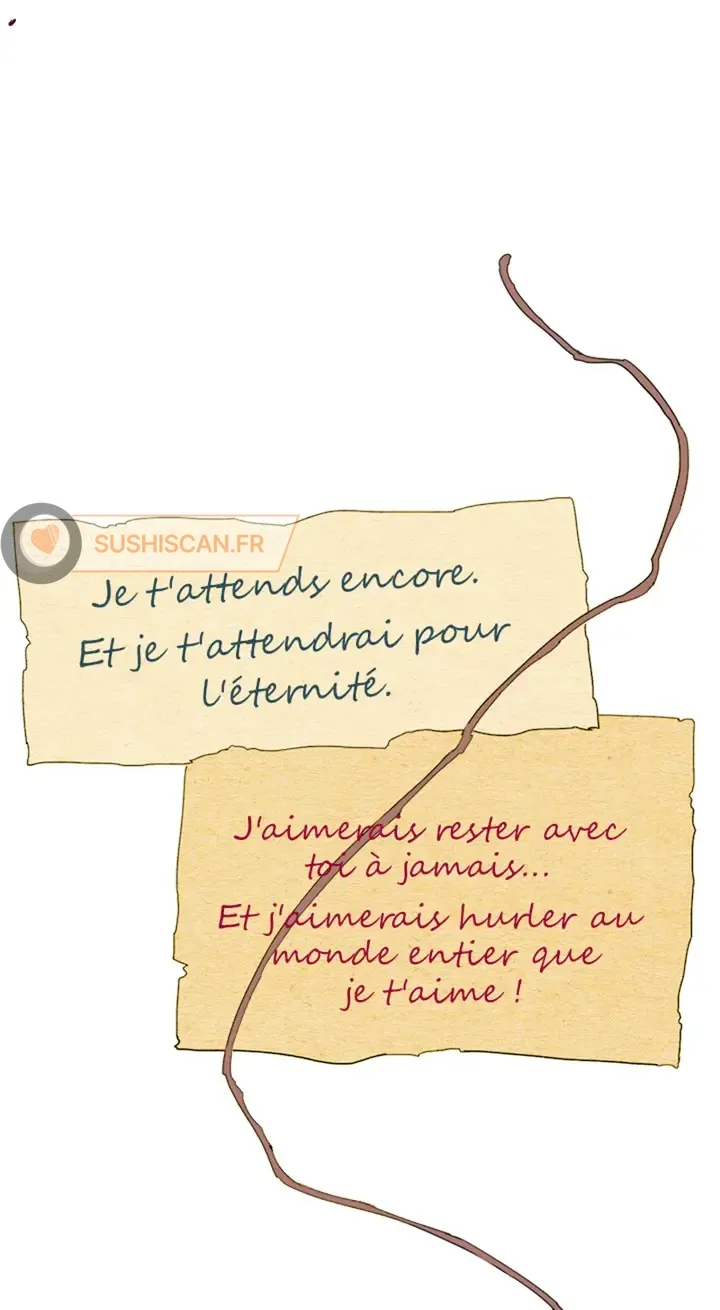 SUSHISCAN.FR
Je t'attends encore.
Et je t'attendrai pour
l'éternité.
J'aimerais rester avec
toi à jamais...
Et j'aimerais hurler au
monde entier que
je t'aime !